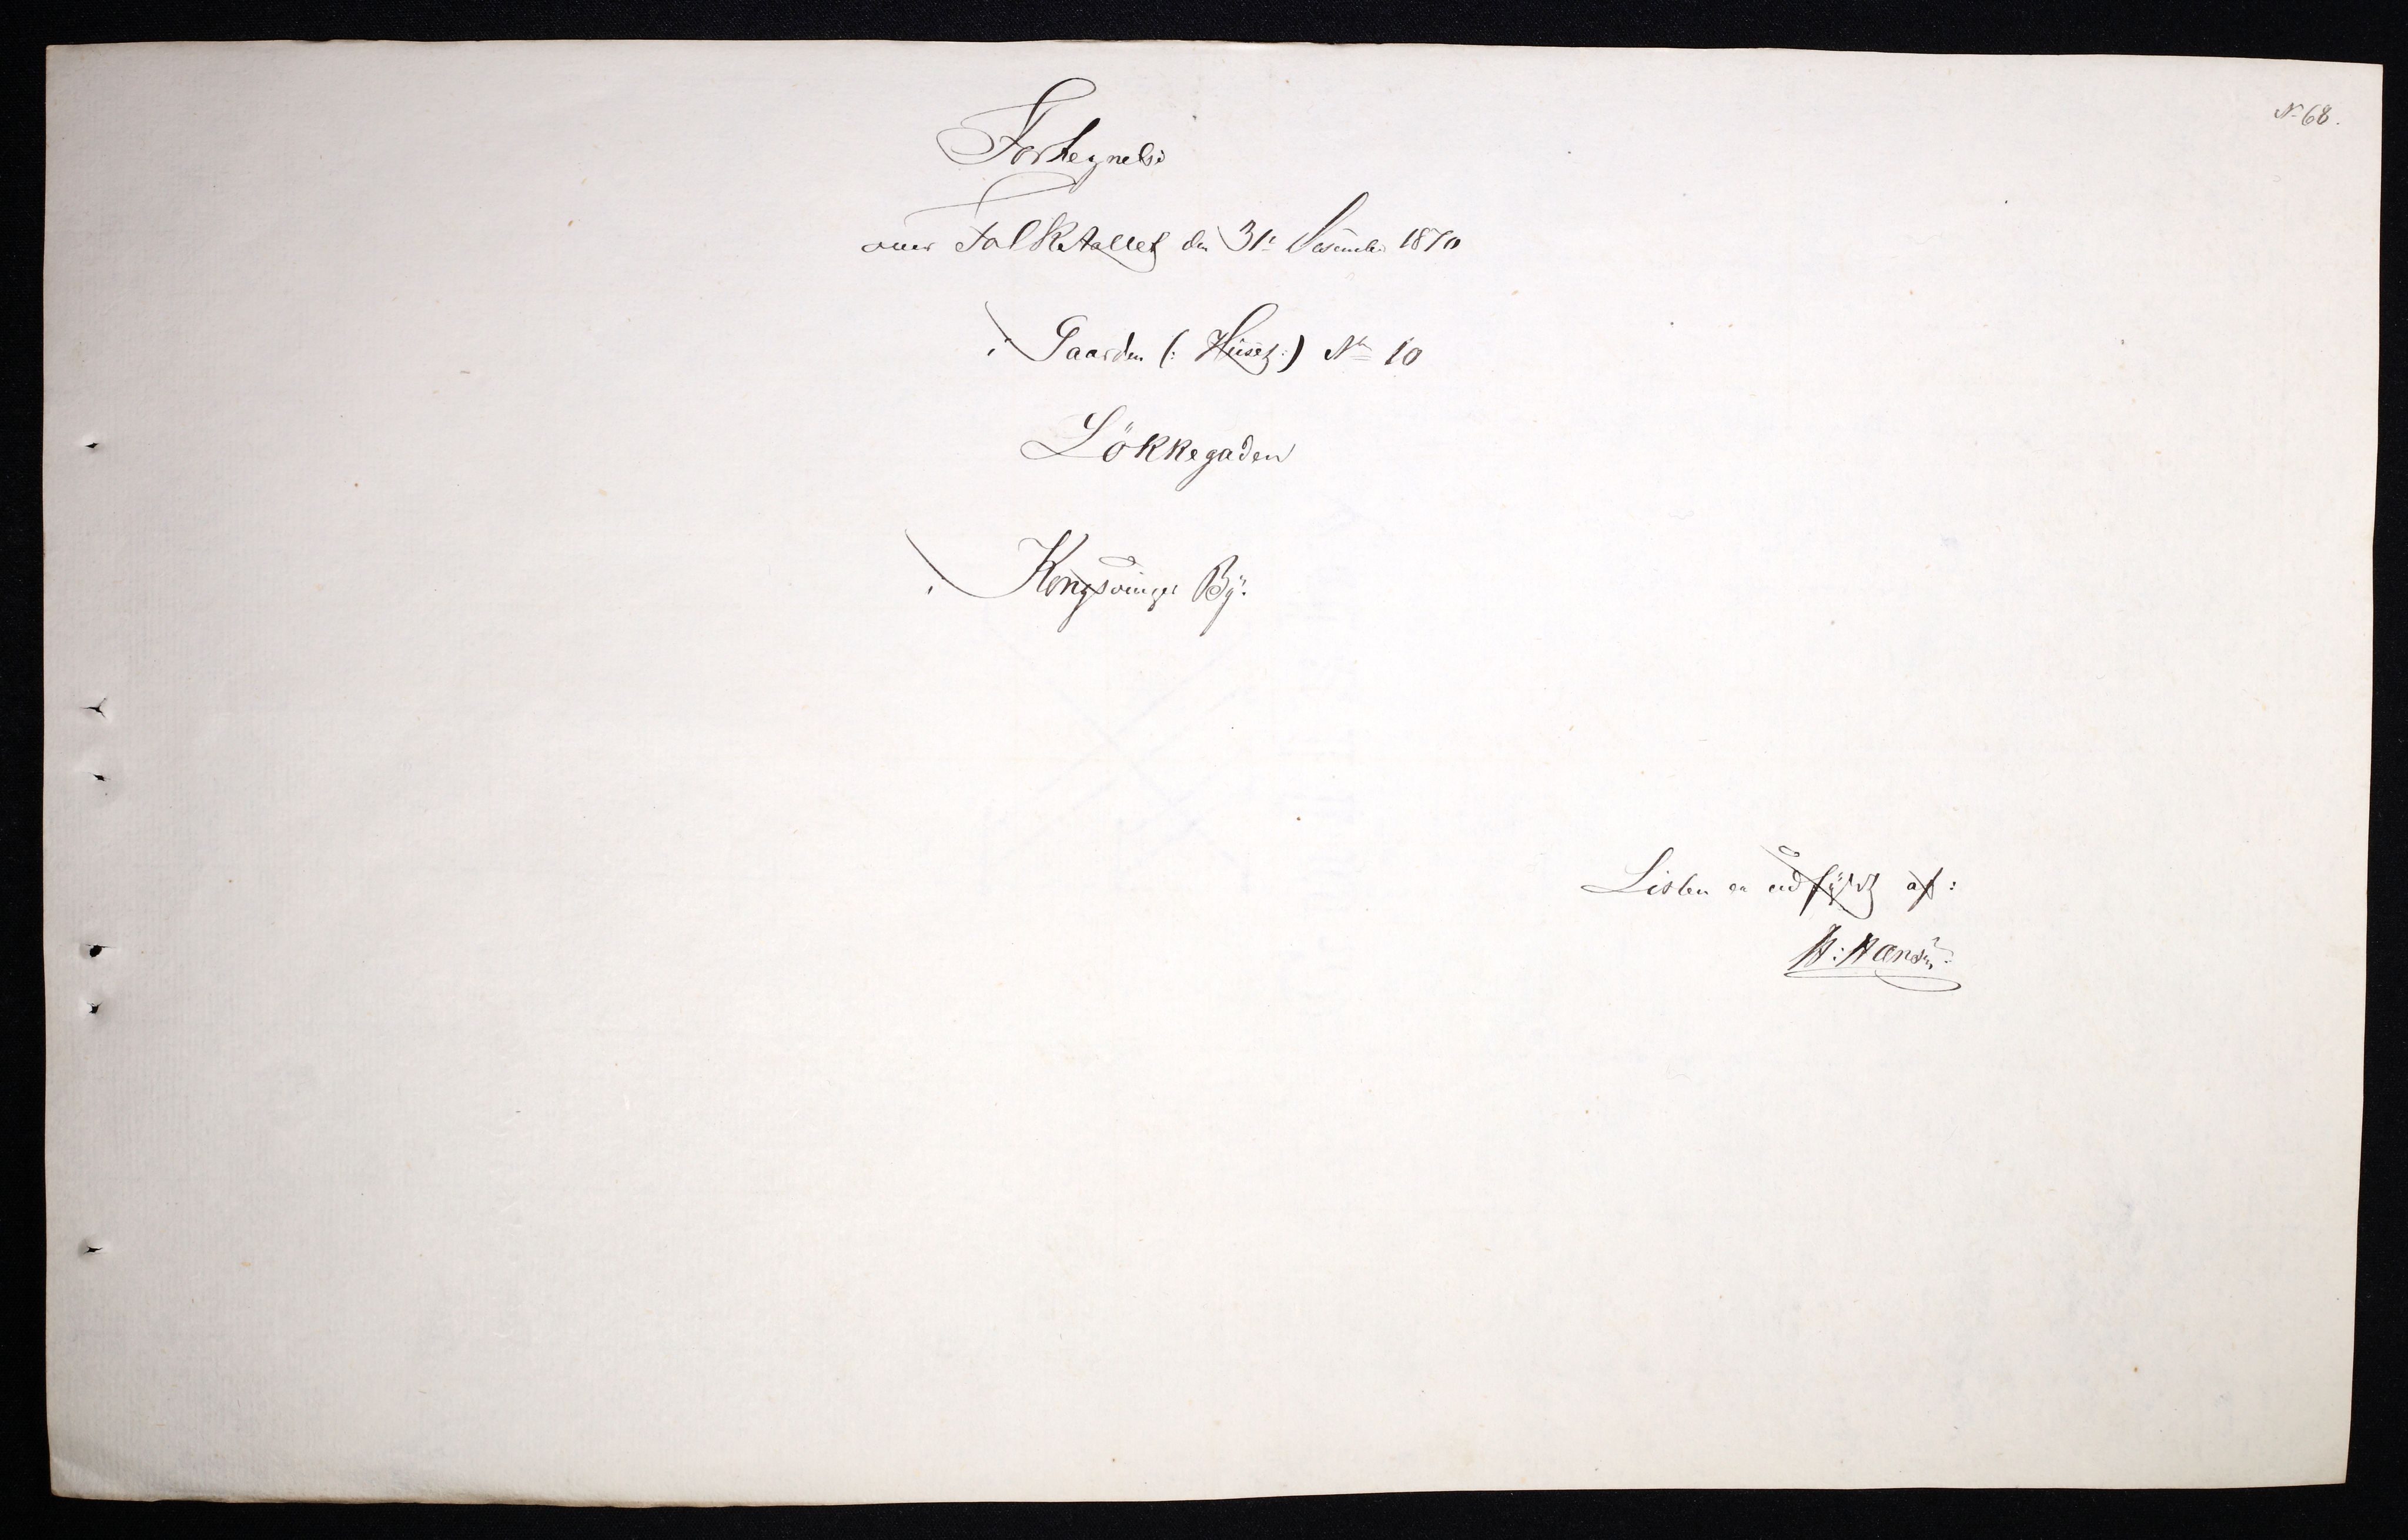 N. 68.
Fortegnelse
over Folketallet den 31te Desember 1870
i Gaarden (: Huset :) No 10
Lökkegaden
i Kongsvinger By.
Listen er udfyldt af:
H: Hansen